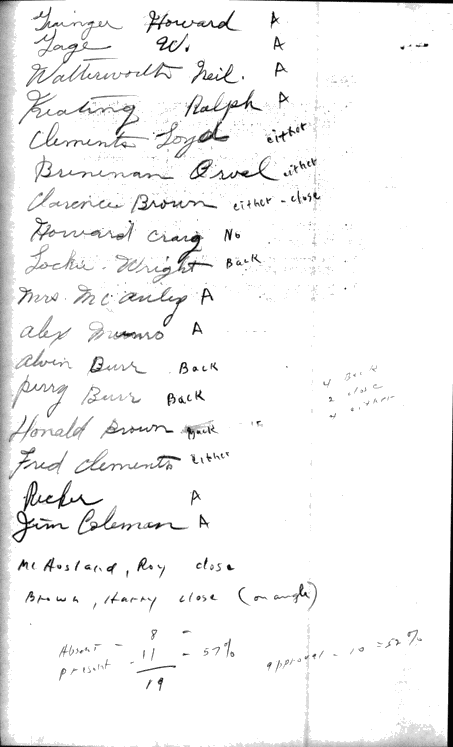 Grainger Howard A
Gage W. A
Watterworth Neil. A
Keating Ralph A
Clements Loyd either
Brennan Orvel either
Clarence Brown either - close
Howard Craig No
Lockie. Wright Back
Mrs McAuley A
Alex Munro A
Alvin Burr Back
Perry Burr Back
4 Back
2 close
4 either
Honald Brown Back
Fred Clements Either
Recker A
Jim Coleman A
McAusland, Roy close
Brown, Harry close (on angle)
Absent - 8 -
present - 11 - 57%
approval - 10 = 52%
19